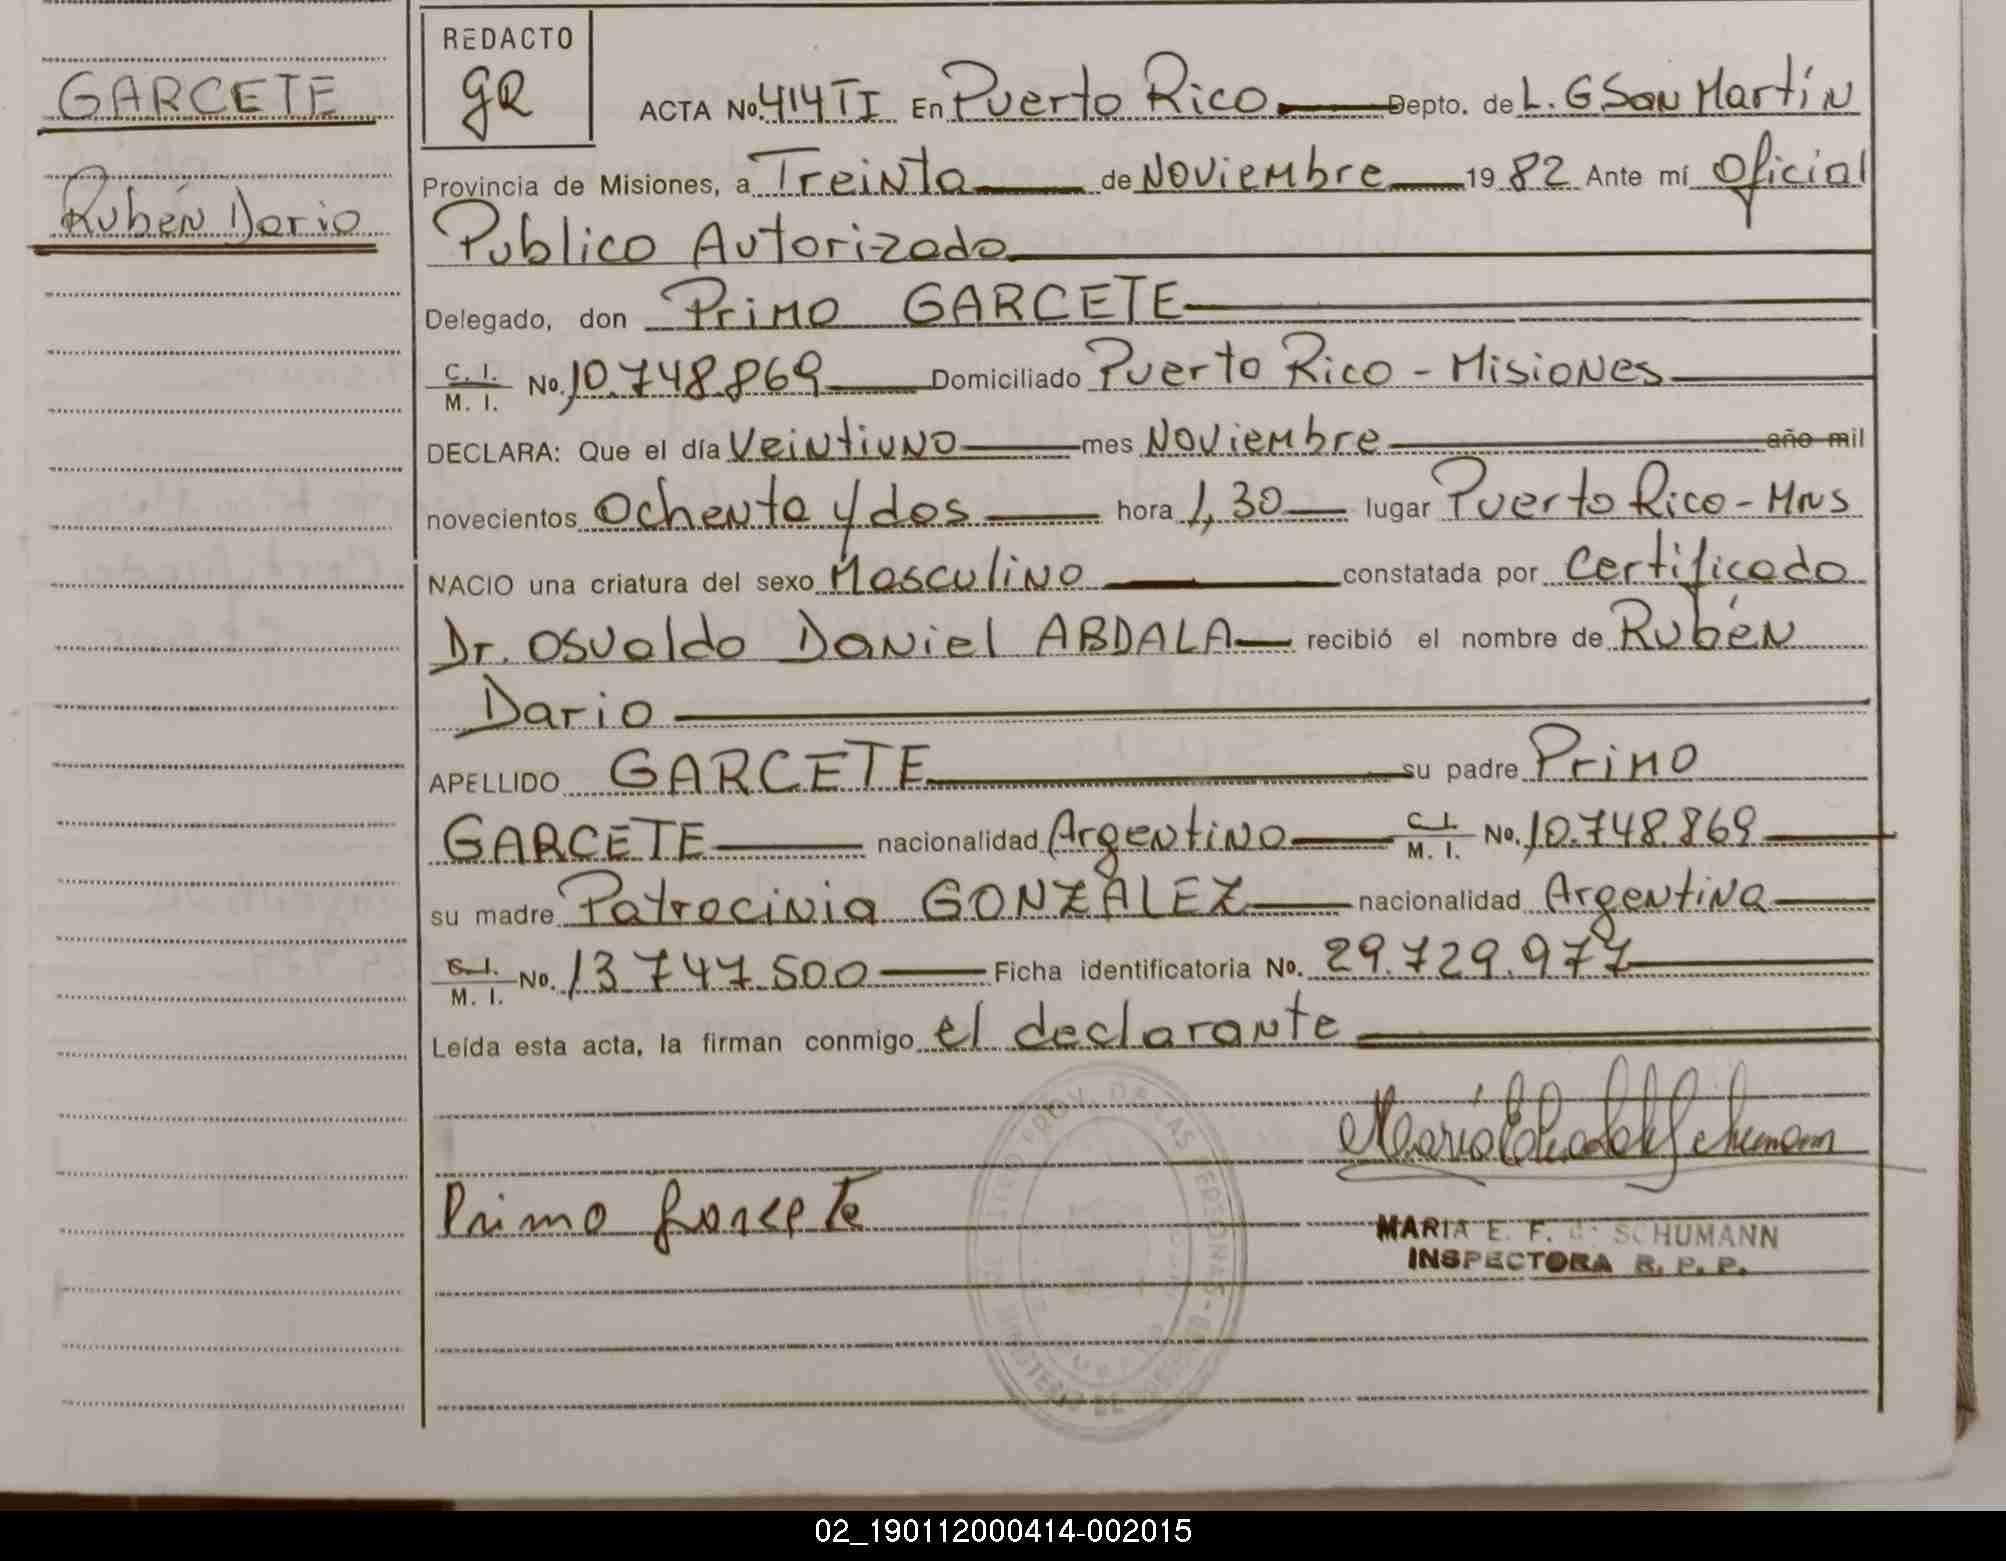 GARCETE
Rubén Dario
REDACTO
GR
ACTA No. 414 TI En Puerto Rico Depto. de L. G San Martín
Provincia de Misiones, a Treinta de Noviembre 19 82 Ante mí Oficial
Publico Autorizado
Delegado, don Primo GARCETE
C. I. M. I. No. 10.748.869 Domiciliado Puerto Rico - Misiones
DECLARA: Que el día Veintiuno mes Noviembre año mil
novecientos Ochenta y dos hora 1,30 lugar Puerto Rico - Mns
NACIO una criatura del sexo Masculino constatada por Certificado
Dr. Osvaldo Daniel ABDALA recibió el nombre de Rubén
Dario
APELLIDO GARCETE su padre Primo
GARCETE nacionalidad Argentino C. I. M. I. No. 10.748.869
su madre Patrocinia GONZÁLEZ nacionalidad Argentina
C. I. M. I. No. 13.747.500 Ficha identificatoria No. 29.729.977
Leída esta acta, la firman conmigo el declarante
Primo Garcete
MARIA E. F. SCHUMANN
INSPECTORA R. P. P.
02_190112000414-002015